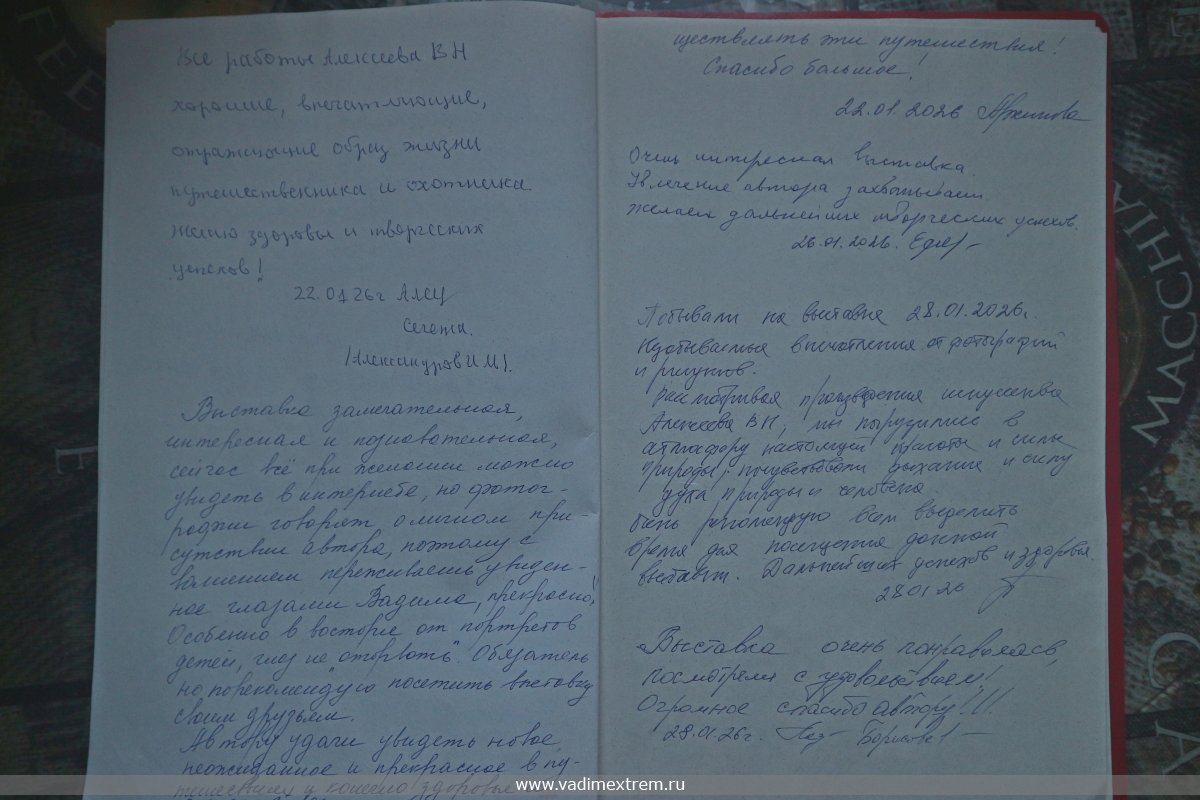 Все работы Алексеева В Н
хорошие, впечатляющие,
отражающие образ жизни
путешественника и охотника
желаю здоровья и творческих
успехов!
22.01 26г
Сегежа.
/Александров И.М/.
Выставка замечательная,
интересная и познавательная,
сейчас всё при желании можно
увидеть в интернете, но фотог-
рафии говорят о личном при-
сутствии автора, поэтому с
волнением переживаешь увиден-
ное глазами Вадима, прекрасно!
Особенно в восторге от портретов
детей, глаз не "оторвать". Обязатель
но порекомендую посетить выставку
своим друзьям.
Автору удачи увидеть новое,
неожиданное и прекрасное в пу-
тешествиях и конечно здоровья
ществлять эти путешествия!
Спасибо большое!
22.01.2026
Очень интересная выставка.
Увлечение автора захватывает
желаем дальнейших творческих успехов.
26.01.2026.
Побывали на выставке 28.01.2026г.
впечатления от фотографий
и рисунков.
Рассматривая произведения искусства
Алексеева ВН, мы погрузились в
атмосферу настоящей красоты и силы
природы, почувствовали дыхание и силу
духа природы и человека.
Очень рекомендую всем выделить
время для посещения данной
выставки. Дальнейших успехов и здоровья.
28 01 26
Выставка очень понравилась,
посмотрели с удовольствием!
Огромное спасибо автору!!!
28.01.26г. Борисова
www.vadimextrem.ru